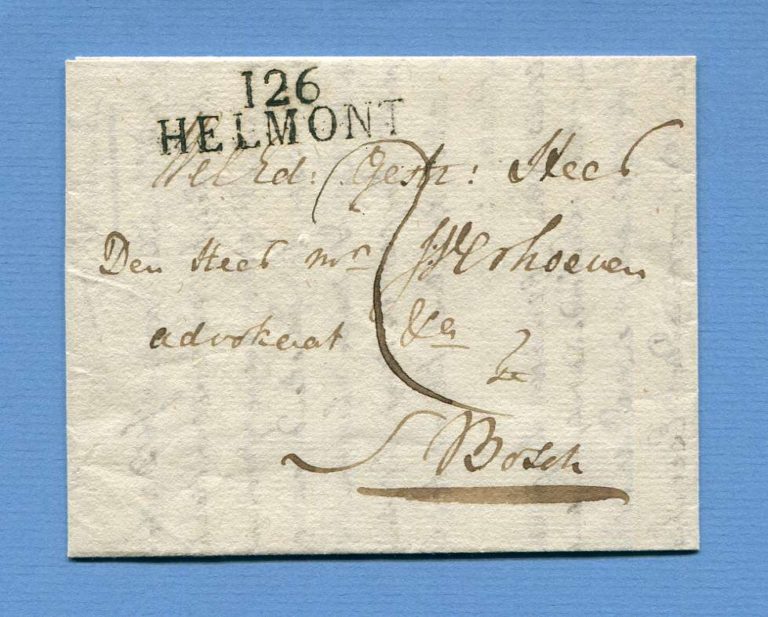 126
HELMONT
Wel Ed: Gestr: Heer
Den Heer Mr J: Verhoeven
advokaat &a
te
S Bosch